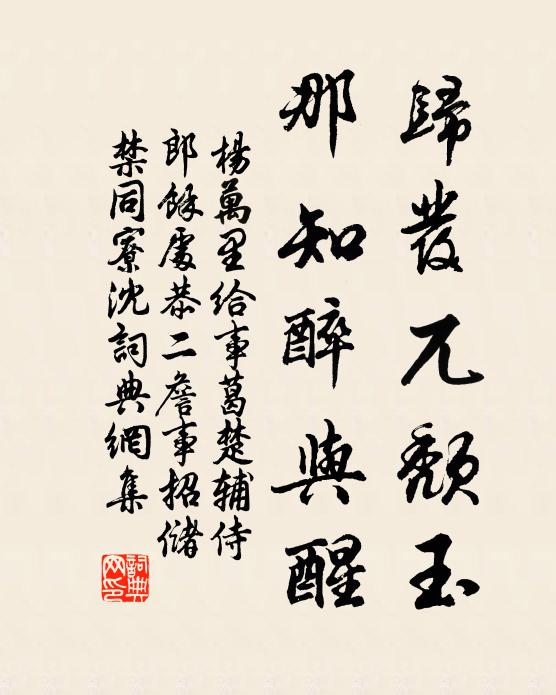 歸發兀頹玉
那知醉與醒
楊萬里給事葛楚輔侍
郎餘處恭二詹事招儲
禁同寮沈詞典網集
詞典網印